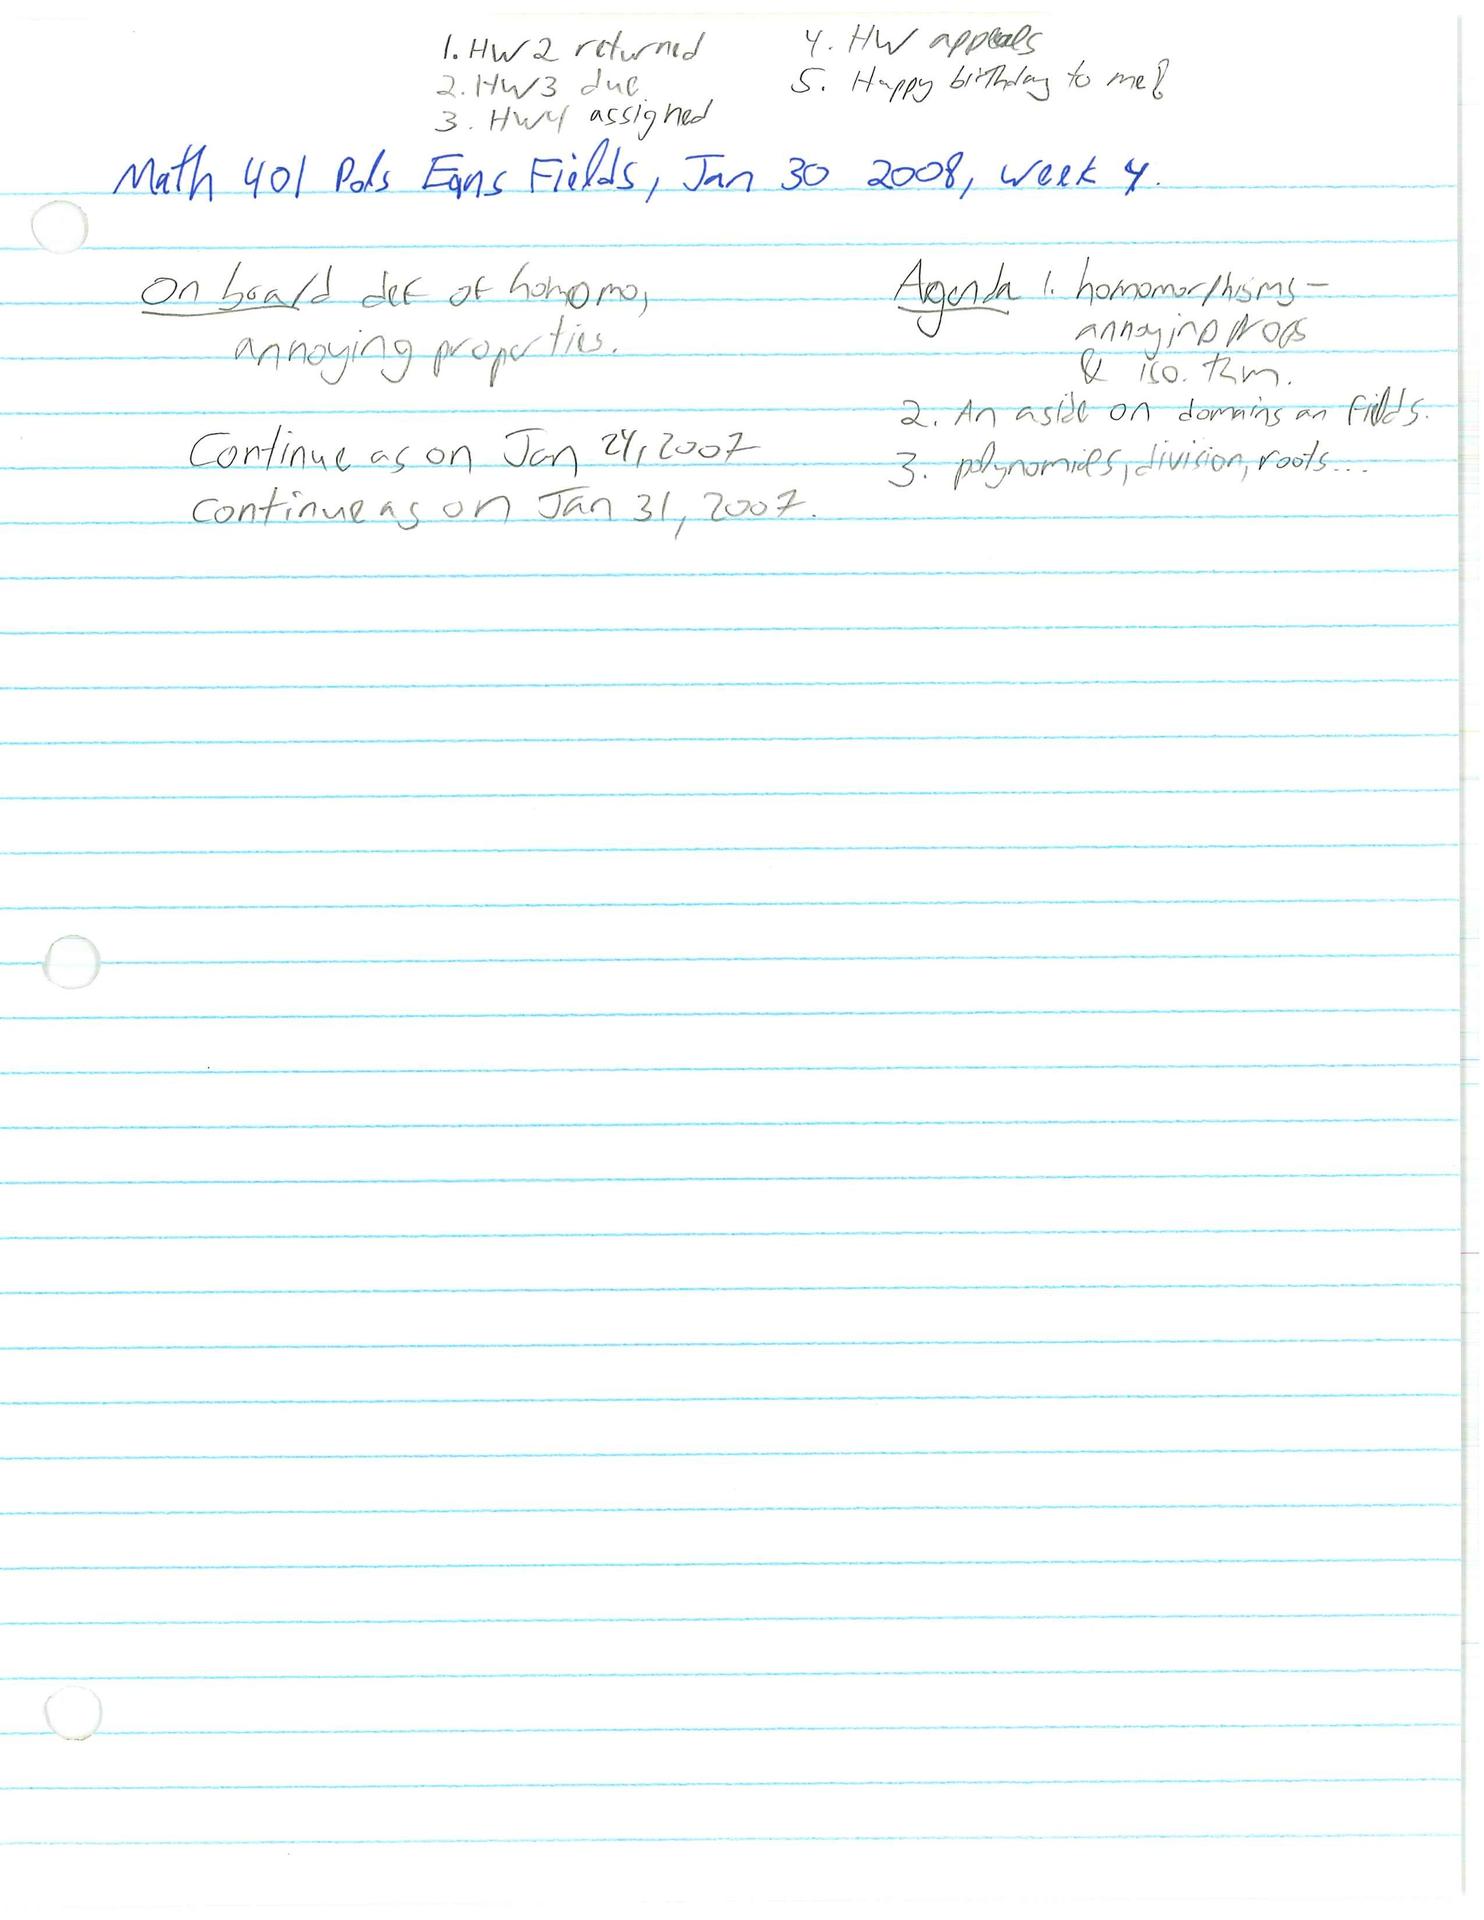 1. HW2 returned
2. HW3 due
3. HW4 assigned
4. HW appeals
5. Happy birthday to me!
Math 401 Pols Eqns Fields, Jan 30 2008, week 4.
On board def of homomo,
annoying properties.
Continue as on Jan 24, 2007
Continue as on Jan 31, 2007.
Agenda 1. homomorphisms -
annoying props
& iso. thm.
2. An aside on domains an fields.
3. polynomials, division, roots...